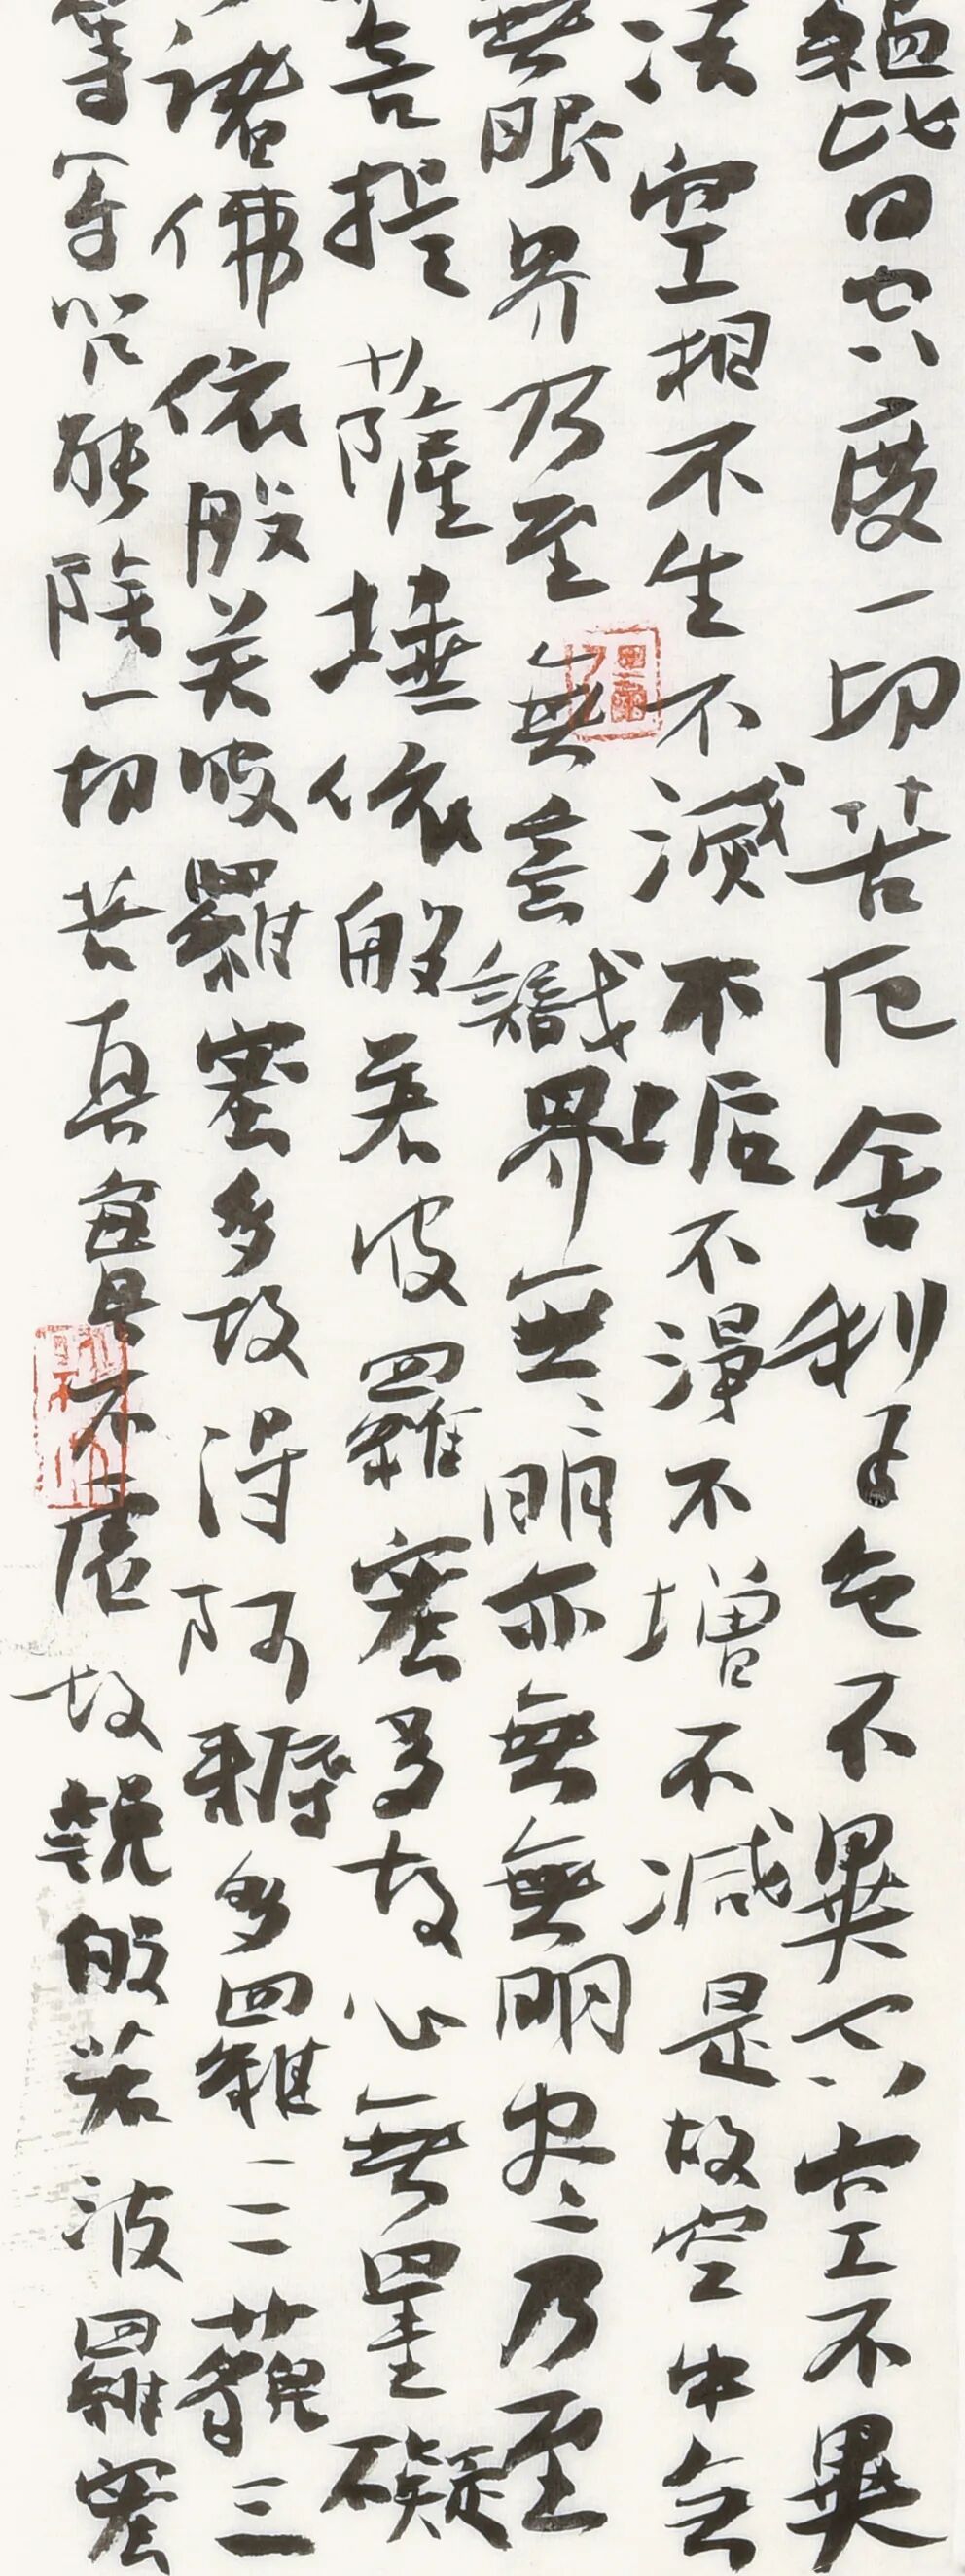 蘊皆空度一切苦厄舍利子色不異空空不異
法空相不生不滅不垢不淨不增不減是故空中無
無眼界乃至無意識界無無明亦無無明盡乃至
菩提薩埵依般若波羅蜜多故心無罣礙
諸佛依般若波羅蜜多故得阿耨多羅三藐三
等等咒能除一切苦真實不虛故說般若波羅蜜